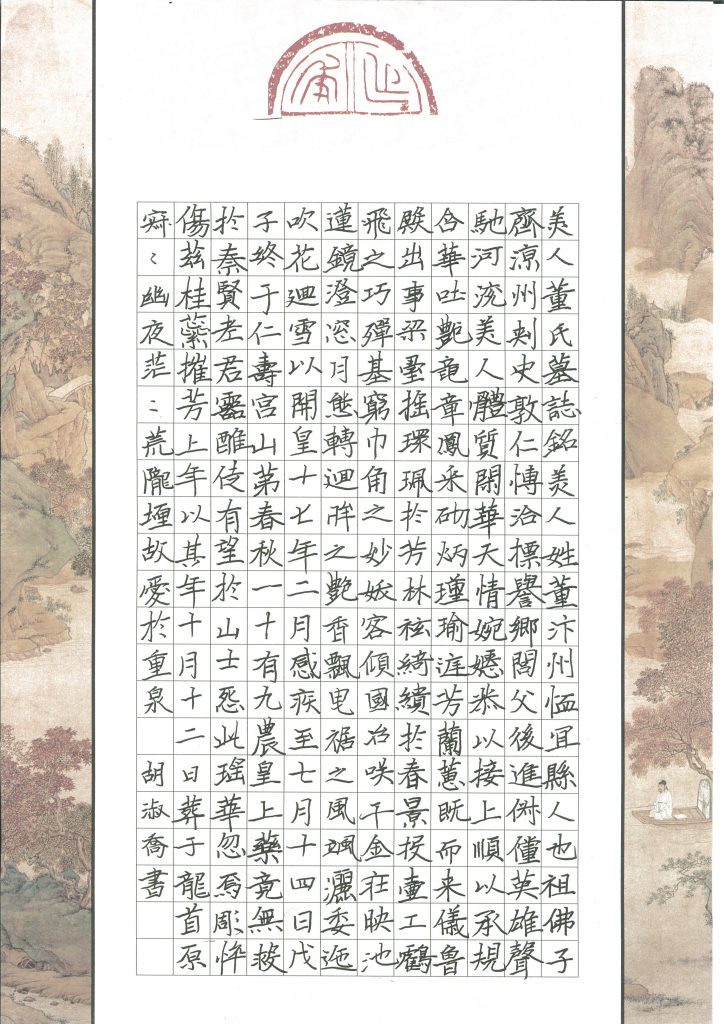 美人董氏墓誌銘美人姓董汴州恤宜縣人也祖佛子
齊涼州刺史敦仁博洽標譽鄉閭父後進俶儻英雄聲
馳河沇美人體質閑華天情婉嫕恭以接上順以承規
含華吐艷龍章鳳采砌炳瑾瑜庭芳蘭蕙既而来儀魯
殿出事梁臺搖環珮於芳林袨綺繢於春景投壺工鶴
飛之巧彈基窮巾角之妙妖容傾國冶咲千金莊映池
蓮鏡澄窓月態轉迴眸之艷香飄曳裾之風颯灑委迤
吹花迴雪以開皇十七年二月感疾至七月十四日戊
子終于仁壽宮山第春秋一十有九農皇上藥竟無救
於秦賢老君靈醮伎有望於山士怨此瑤華忽焉彫悴
傷茲桂蘂摧芳上年以其年十月十二日葬于龍首原
寂〻幽夜茫〻荒隴埋故愛於重泉 胡淑喬書